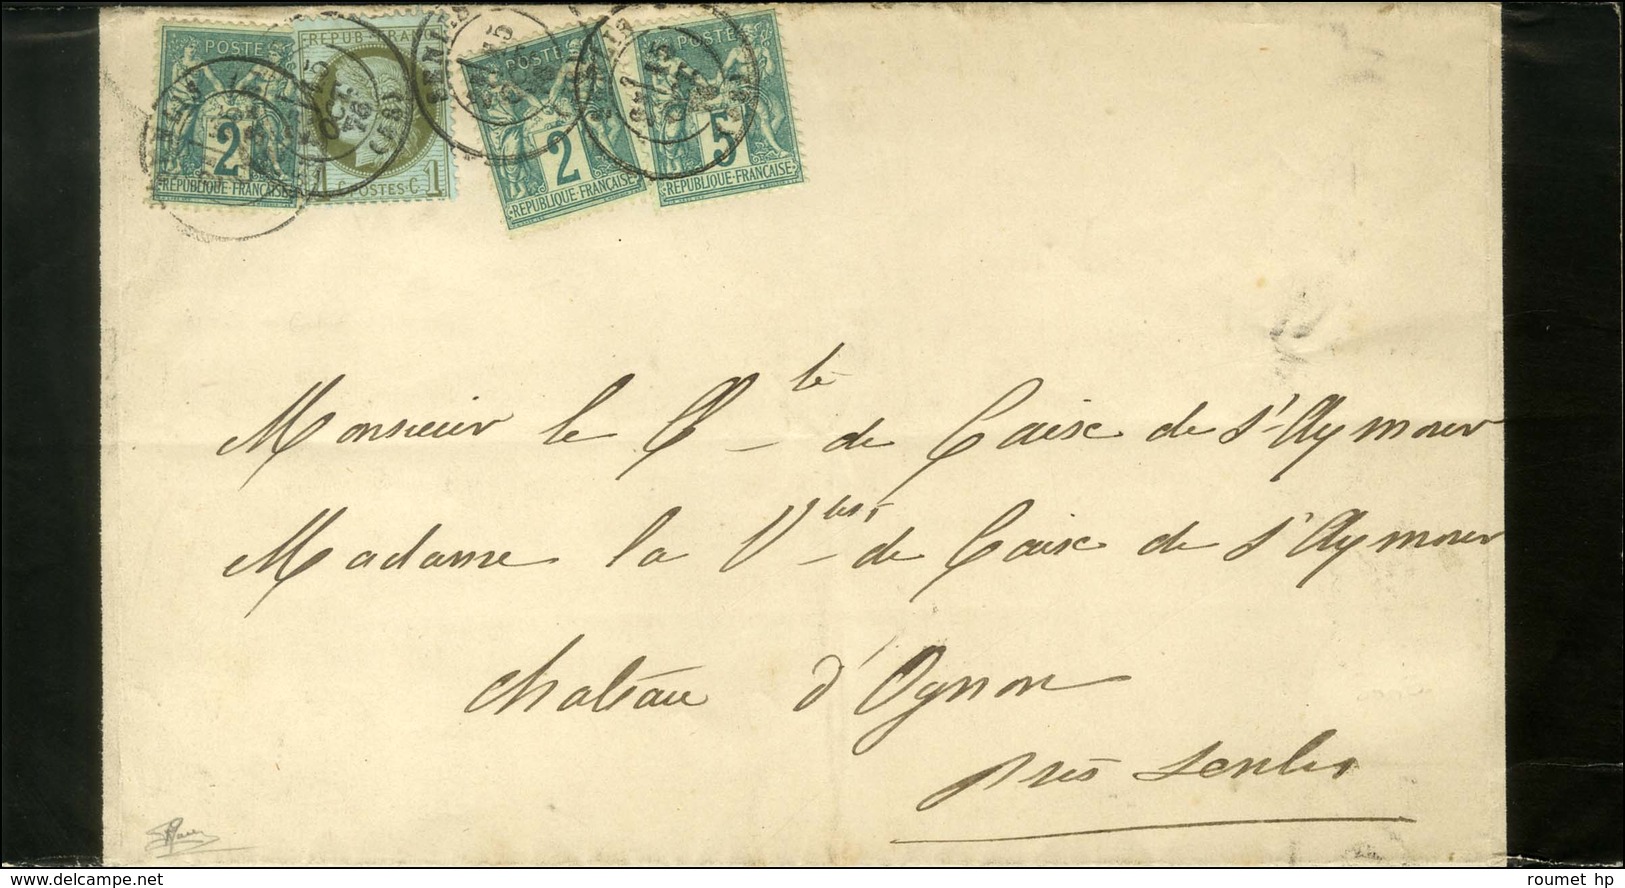 POSTES
2
REPUBLIQUE-FRANÇAISE
REPUB·FRANÇ
1
C·POSTES·C
1
OCT.
78
POSTE
2
REPUBLIQUE-FRANÇAISE
POSTE
5
REPUBLIQUE-FRANÇAISE
SENLIS
15
OCT
Monsieur le Cte de Caix de St Aymour
Madame la Vtesse de Caix de St Aymour
Chateau d'Ognon
près Senlis
roumet hp